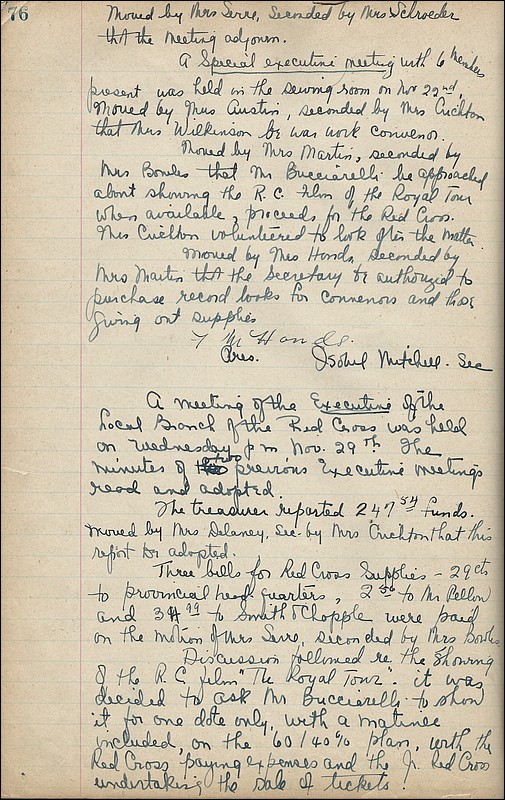 76
Moved by Mrs Serre, Seconded by Mrs Schroeder
that the meeting adjourn.
A Special executive meeting with 6 members
present was held in the sewing room on Nov 22nd,
Moved by Mrs Austin, seconded by Mrs Crichton
that Mrs Wilkinson be war work convenor.
Moved by Mrs Martin, seconded by
Mrs Bowles that Mr Bucciarelli be approached
about showing the R.C. Film of the Royal Tour
when available, proceeds for the Red Cross.
Mrs Crichton volunteered to look after the matter.
Moved by Mrs Hands, seconded by
Mrs Martin that the secretary be authorized to
purchase record books for convenors and those
giving out supplies
M Hands.
Pres. Isobel Mitchell. Sec
A meeting of the Executive of the
Local Branch of the Red Cross was held
on Wednesday pm Nov. 29th. The
minutes of two previous Executive meetings
read and adopted.
The treasurer reported 247 54 funds.
Moved by Mrs Delaney, Sec. by Mrs Crichton that this
report be adopted.
Three bills for Red Cross Supplies - 29cts
to provincial head quarters, 2 50 to Mr Pellow
and 34 99 to Smith & Chapple were paid
on the motion of Mrs Serre, seconded by Mrs Bowles
Discussion followed re, the showing
of the R.C. film "The Royal Tour". it was
decided to ask Mr Bucciarelli to show
it for one date only, with a matinee
included, on the 60/40% plan, with the
Red Cross paying expenses and the Jr. Red Cross
undertaking the sale of tickets.